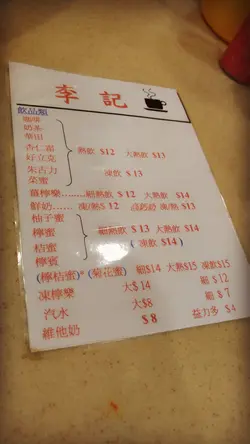 李記
飲品類
咖啡
奶茶
華田
杏仁霜 熱飲 $12 大熱飲 $13
好立克
朱古力 凍飲 $13
菜蜜
薑檸樂......細熱飲 $12 大熱飲 $14
鮮奶...... 凍/熱 $12 凍/熱 $13
柚子蜜
檸蜜 細熱飲 $13 大熱飲 $14
桔蜜 (凍飲 $14)
檸賓
(檸桔蜜)* (菊花蜜) 細$14 大熱$15 凍飲$15
凍檸樂 大$14 細 $12
汽水 大$8 細 $7
維他奶 $8 益力多 $4